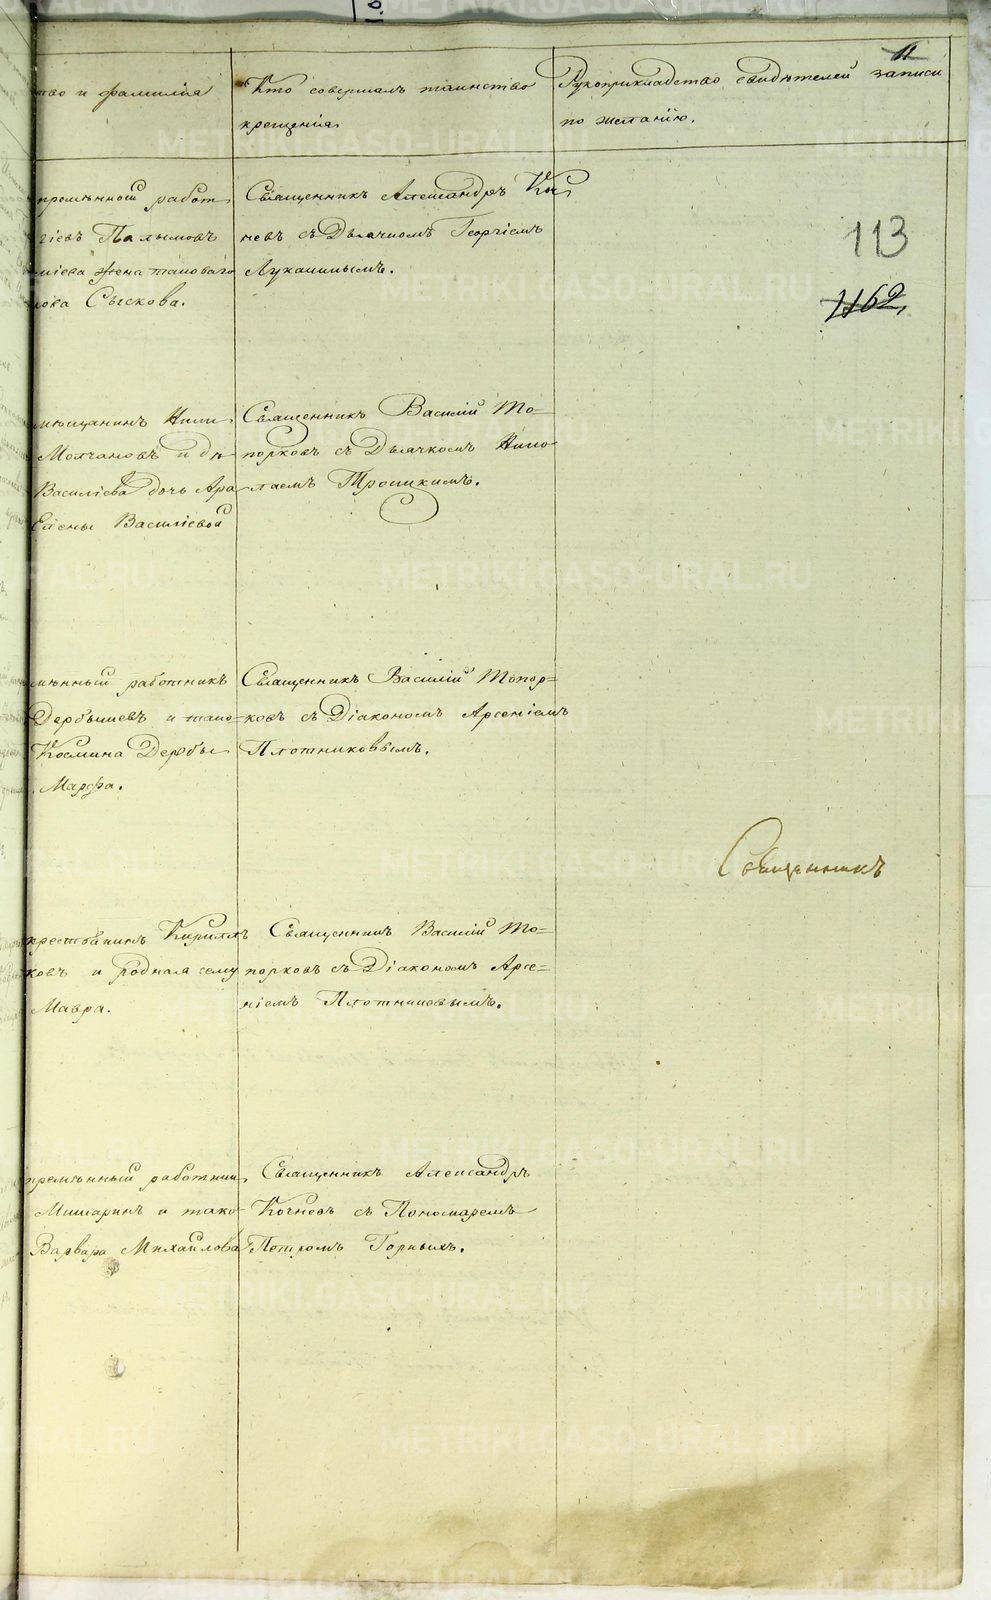 11
тво и фамилія
Кто совершалъ таинство
крещенія
Рукоприкладство свидѣтелей записи
по желанію.
113
1162,
премѣнной работ
гіевъ Палымовъ
жена таковаго
лова Сыскова.
Священникъ Александръ Коч
невъ съ Дьячкомъ Георгіемъ
Луканинымъ.
мѣщанинъ Ники
Молчановъ и дѣ
Василіева дочь Ара
Елены Василіевой
Священникъ Василій То=
порковъ съ Дьячкомъ Нико
лаемъ Троицкимъ.
мѣнный работникъ
Дербышевъ и тако=
Космина Дербы
Марфа.
Священникъ Василій Топор=
ковъ съ Діакономъ Арсеніемъ
Плотниковымъ.
Священникъ
крестьянинъ Кириллъ
ковъ и родная сему
Мавра.
Священникъ Василій То=
порковъ съ Діакономъ Арсе=
ніемъ Плотниковымъ.
премѣнный работник
Мишаринъ и тако
Варвара Михайлова
Священникъ Александръ
Кочневъ съ Пономаремъ
Петромъ Горныхъ.
METRIKI.GASO-URAL.RU